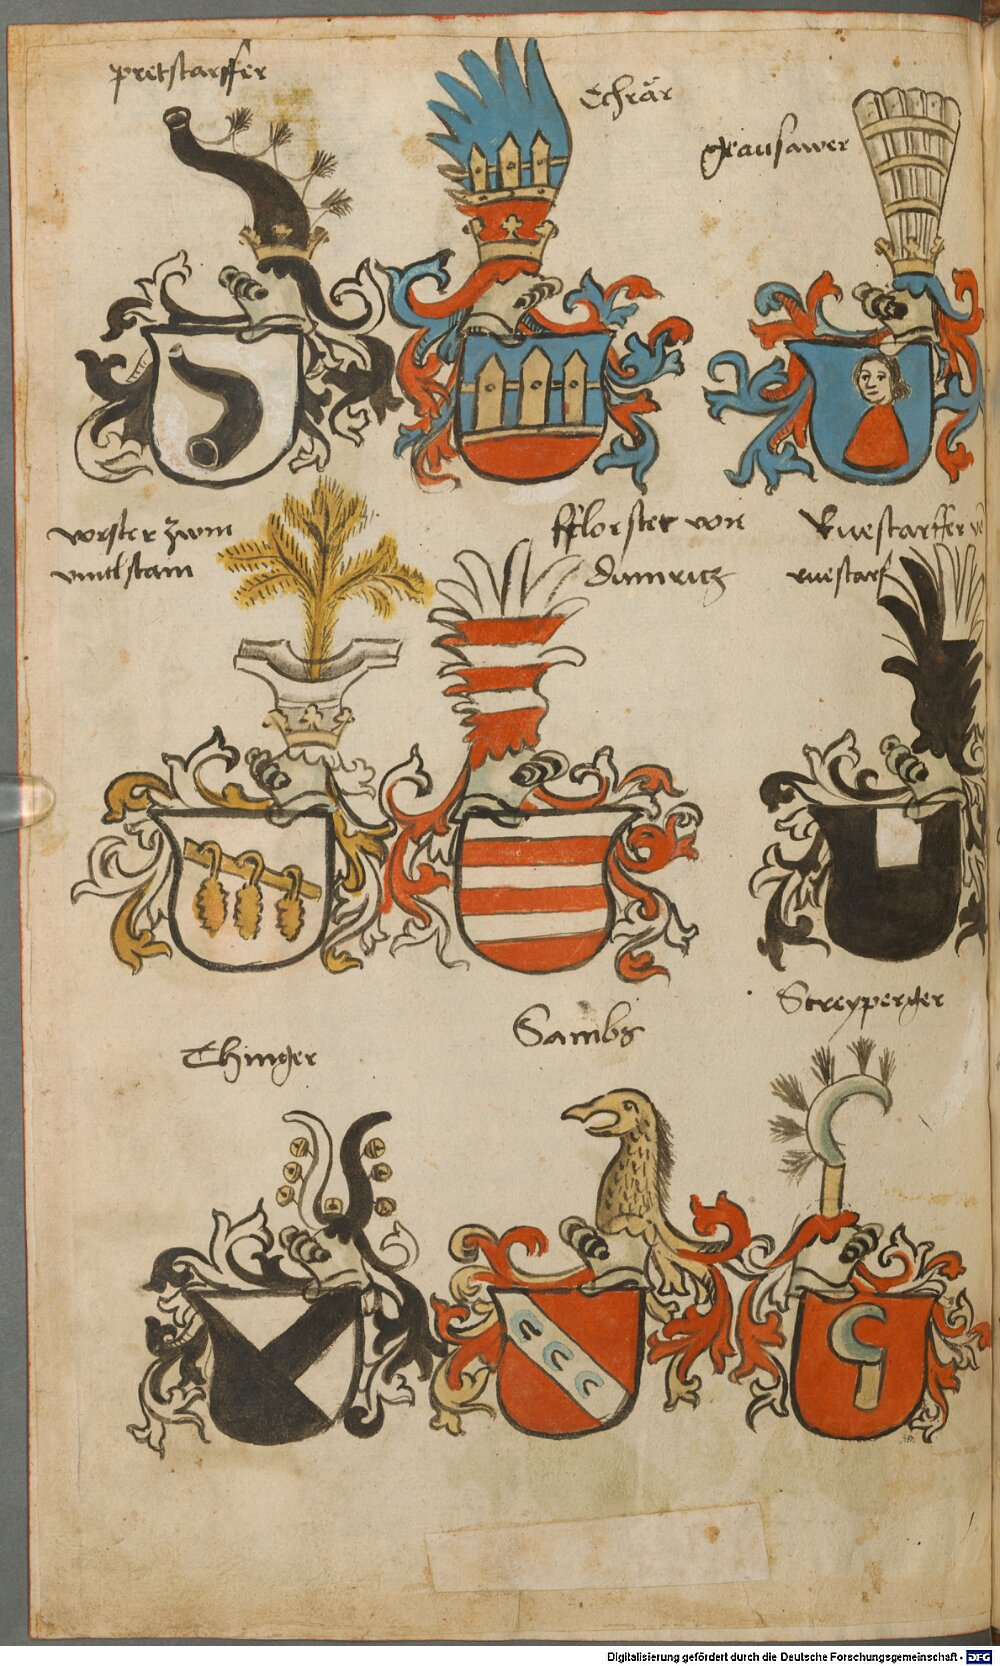 pretstarffer
Echrär
grausawer
vorster zwm
vintlstam
fflorster von
damritz
Ruestarffer vo
ruestarf
Thinger
Sambs
Streyperger
Digitalisierung gefördert durch die Deutsche Forschungsgemeinschaft - DFG